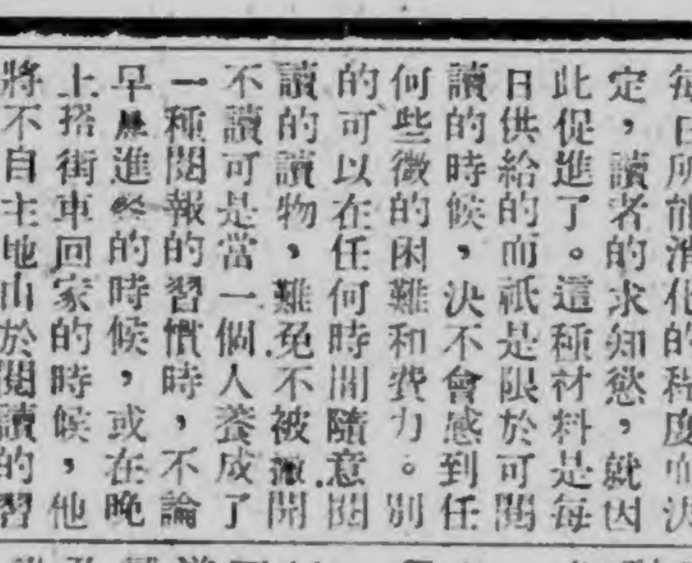 每日所能消化的程度而決
定，讀者的求知慾，就因
此促進了。這種材料是每
日供給的而祇是限於可閱
讀的時候，決不會感到任
何些微的困難和費力。別
的可以在任何時間隨意閱
讀的讀物，難免不被撇開
不讀可是當一個人養成了
一種閱報的習慣時，不論
早晨進餐的時候，或在晚
上搭街車回家的時候，他
將不自主地由於閱讀的習